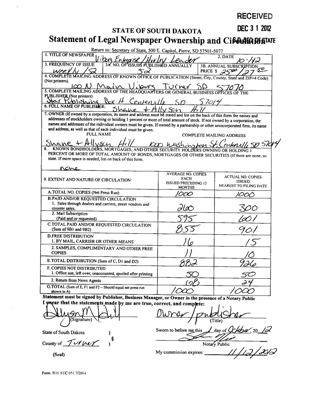 RECEIVED
DEC 31 2012
STATE OF SOUTH DAKOTA
Statement of Legal Newspaper Ownership and Circulation
Return to: Secretary of State, 500 E. Capitol, Pierre, SD 57501-5077
1. TITLE OF NEWSPAPER
2. DATE
10/12
3. FREQUENCY OF ISSUE
Weekly / 52
3A. NO. OF ISSUES PUBLISHED ANNUALLY
52
3B. ANNUAL SUBSCRIPTION PRICE $
4. COMPLETE MAILING ADDRESS OF KNOWN OFFICE OF PUBLICATION (Street, City, County, State and ZIP+4 Code) (Not printers)
100 N Main Viborg Turner SD 57070
5. COMPLETE MAILING ADDRESS OF THE HEADQUARTERS OR GENERAL BUSINESS OFFICES OF THE PUBLISHER (Not printers)
Star Publishing Box H Centerville SD 57014
6. FULL NAME OF PUBLISHER:
Shane & Allyson Hill
7. OWNER (If owned by a corporation, its name and address must be stated and also immediately
FULL NAME
COMPLETE MAILING ADDRESS
Shane & Allyson Hill 1000 Washington St Centerville SD 57014
8. KNOWN BONDHOLDERS, MORTGAGEES, AND OTHER SECURITY HOLDERS OWNING OR HOLDING 1 PERCENT OR MORE OF TOTAL AMOUNT OF BONDS, MORTGAGES OR OTHER SECURITIES (If there are none, so state. If more space is needed, list on back of this form.
none
9. EXTENT AND NATURE OF CIRCULATION
AVERAGE NO. COPIES EACH ISSUED PRECEDING 12 MONTHS
ACTUAL NO. COPIES ISSUED NEAREST TO FILING DATE
A. TOTAL NO. COPIES (Net Press Run)
1000
1000
B. PAID AND/OR REQUESTED CIRCULATION
1. Sales through dealers and carriers, street vendors and counter sales.
260
300
2. Mail Subscription
(Paid and or requested)
595
601
C. TOTAL PAID AND/OR REQUESTED CIRCULATION
(Sum of 9B1 and 9B2)
855
901
D. FREE DISTRIBUTION
1. BY MAIL, CARRIER OR OTHER MEANS
16
15
2. SAMPLES, COMPLIMENTARY AND OTHER FREE COPIES
11
10
E. TOTAL DISTRIBUTION (Sum of C, D1 and D2)
882
926
F. COPIES NOT DISTRIBUTED
1. Office use, left over, unaccounted, spoiled after printing
50
50
2. Return from News Agents
24
G. TOTAL (Sum of E, F1 and F2 - Should equal net press run shown in A)
1000
1000
Statement must be signed by Publisher, Business Manager, or Owner in the presence of a Notary Public
I swear that the statements made by me are true, correct, and complete:
Owner / publisher
(Signature)
(Title)
State of South Dakota )
County of Turner )
Sworn to before me this 1 day of October 20 12
Notary Public
(Seal)
My commission expires: